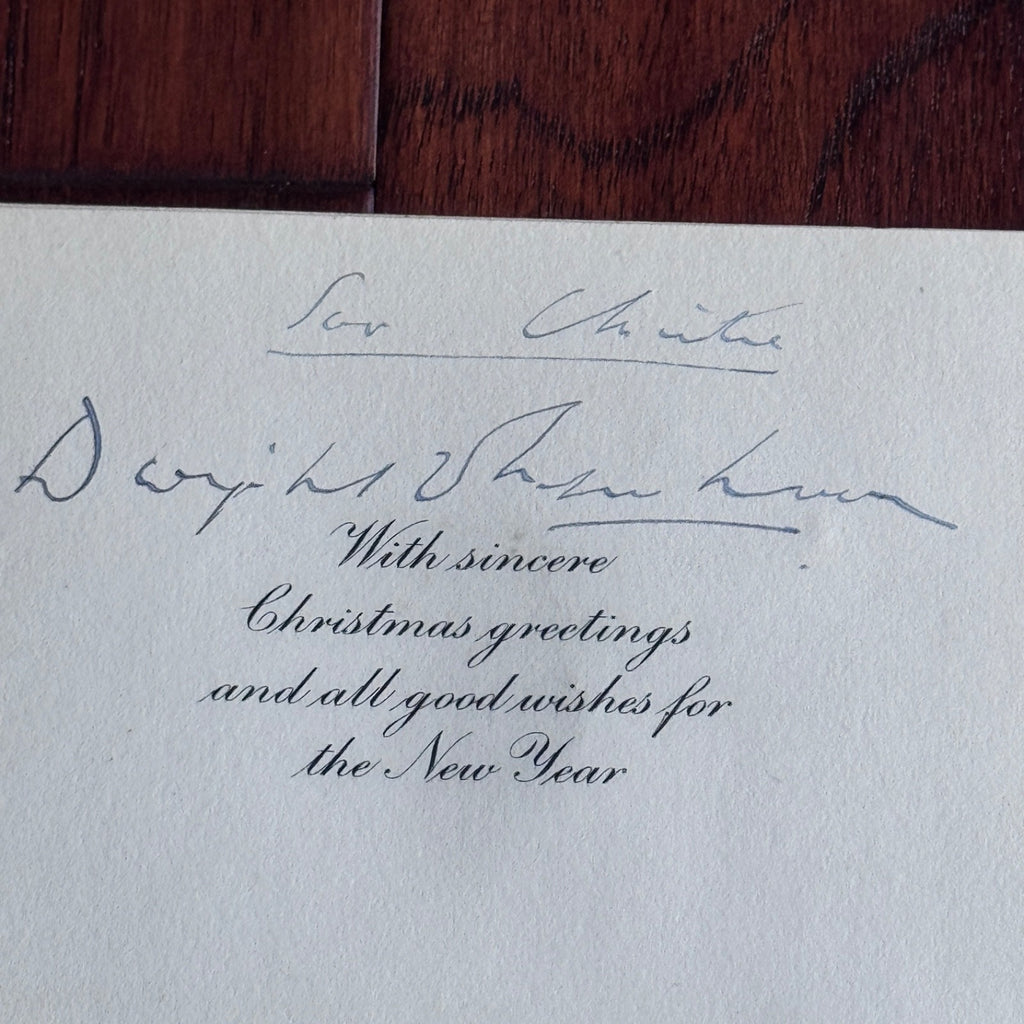 For Christie
Dwight D Eisenhower
With sincere
Christmas greetings
and all good wishes for
the New Year